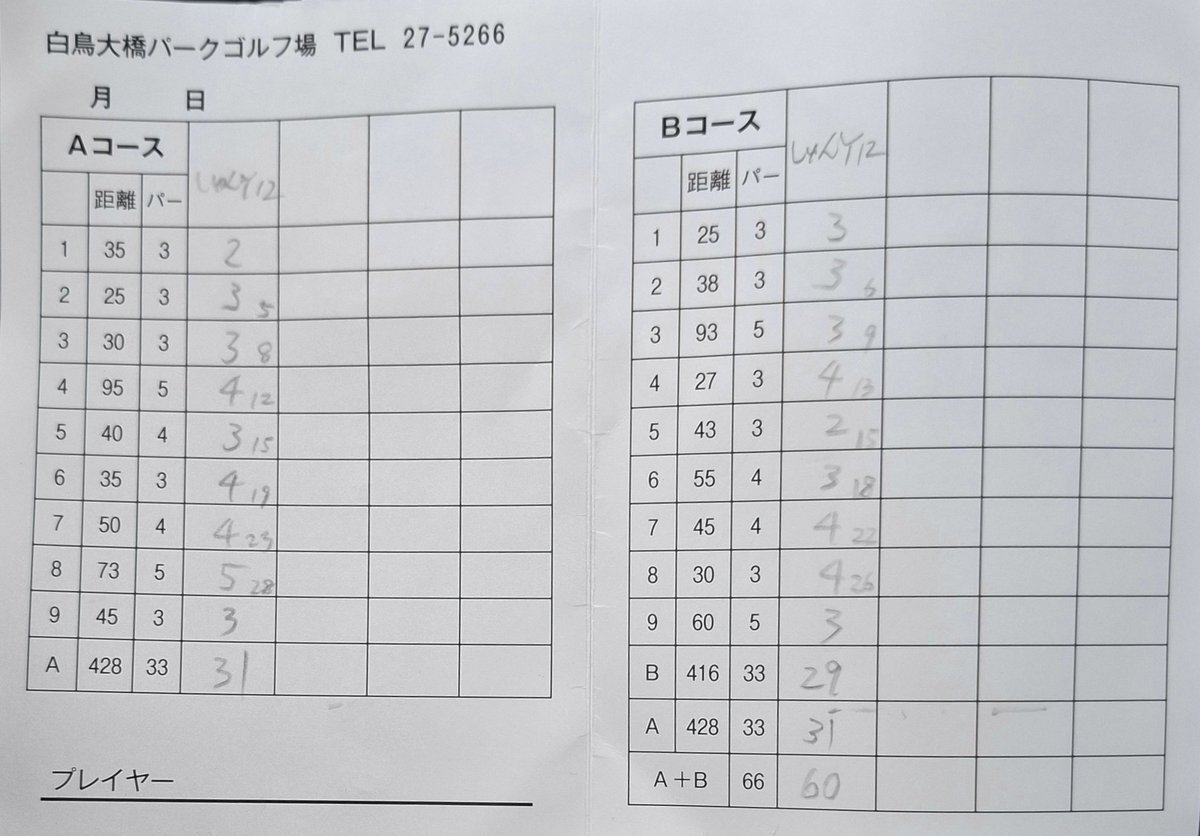 白鳥大橋パークゴルフ場 TEL 27-5266
月 日
Aコース しゅんY12
距離 パー
1 35 3 2
2 25 3 3 5
3 30 3 3 8
4 95 5 4 12
5 40 4 3 15
6 35 3 4 19
7 50 4 4 23
8 73 5 5 28
9 45 3 3
A 428 33 31
プレイヤー
Bコース しゅんY12
距離 パー
1 25 3 3
2 38 3 3 6
3 93 5 3 9
4 27 3 4 13
5 43 3 2 15
6 55 4 3 18
7 45 4 4 22
8 30 3 4 26
9 60 5 3
B 416 33 29
A 428 33 31
A+B 66 60